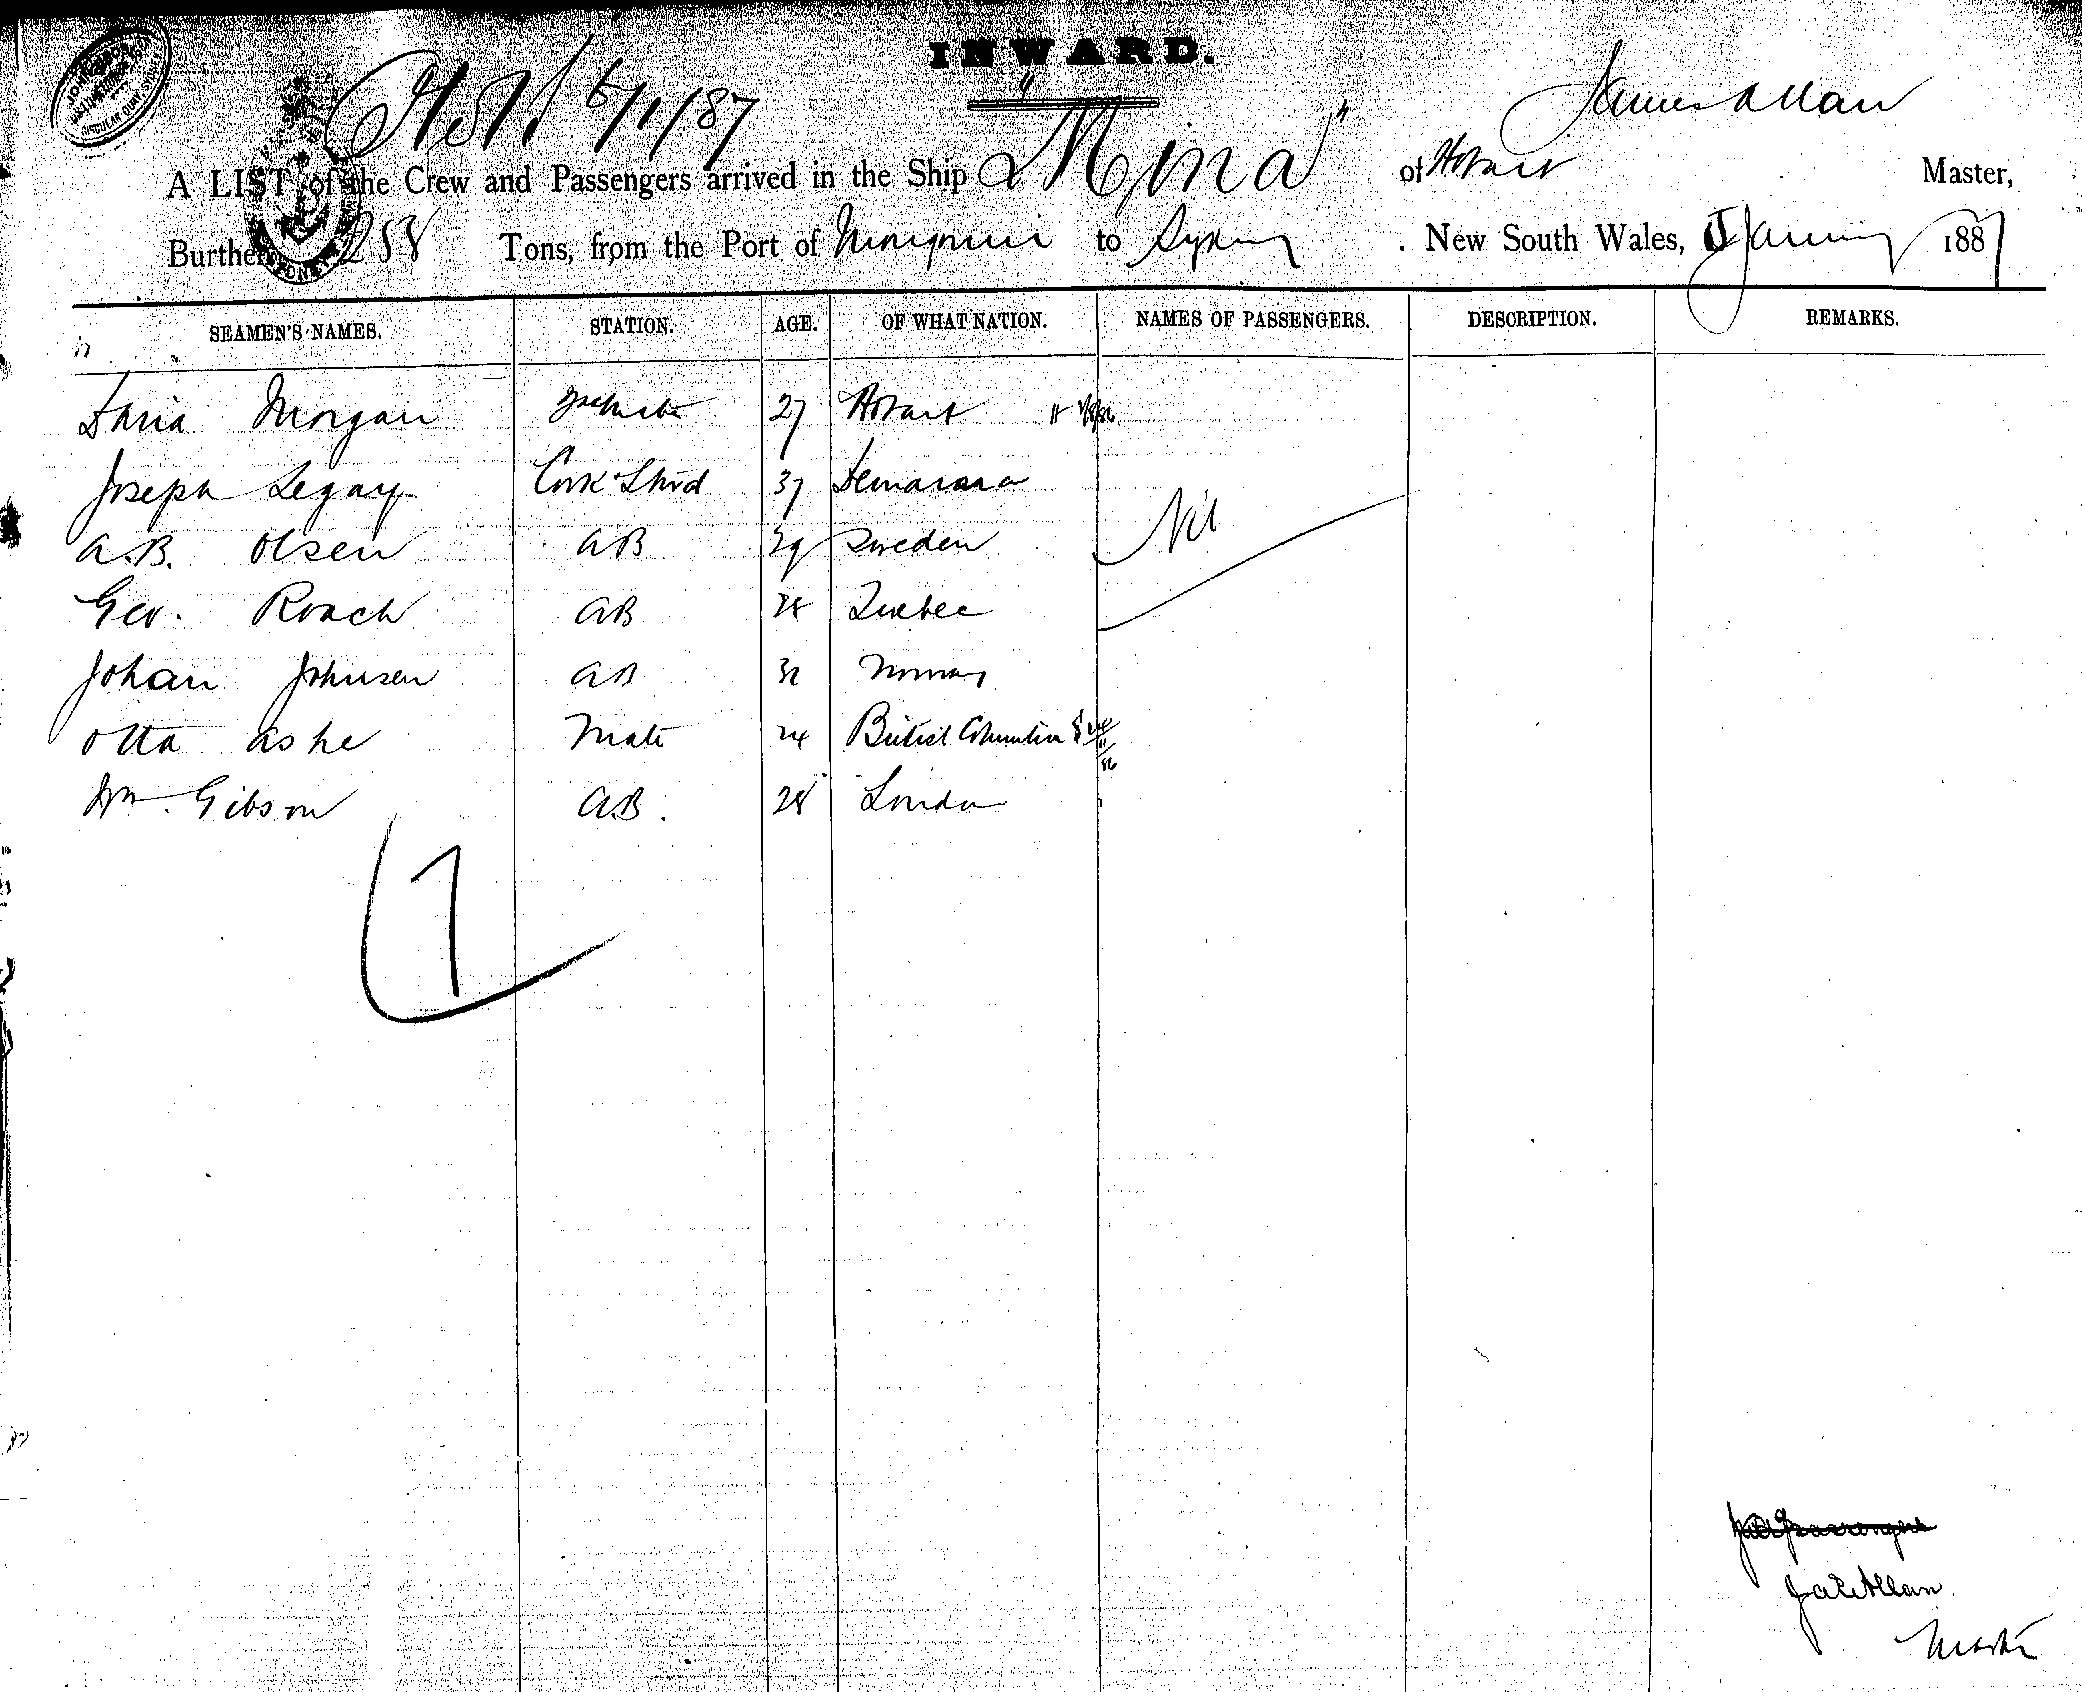 INWARD.
6/1/87
James Allan
A LIST of the Crew and Passengers arrived in the Ship "Mina" of Hobart Master,
Burthen 258 Tons, from the Port of to Sydney. New South Wales, January 1887
SEAMEN'S NAMES. STATION. AGE. OF WHAT NATION. NAMES OF PASSENGERS. DESCRIPTION. REMARKS.
Morgan 2nd Mate 27 Hobart
Joseph Legay Cook & Stwd 37 Demarara
A.B. Olsen AB 29 Sweden Nil
Geo. Roach AB 28 Quebec
Johan Johnsen AB 31 Norway
Otta Ashe Mate 24 British Columbia
Wm. Gibson AB. 28 London
7
Jas Allan
Master